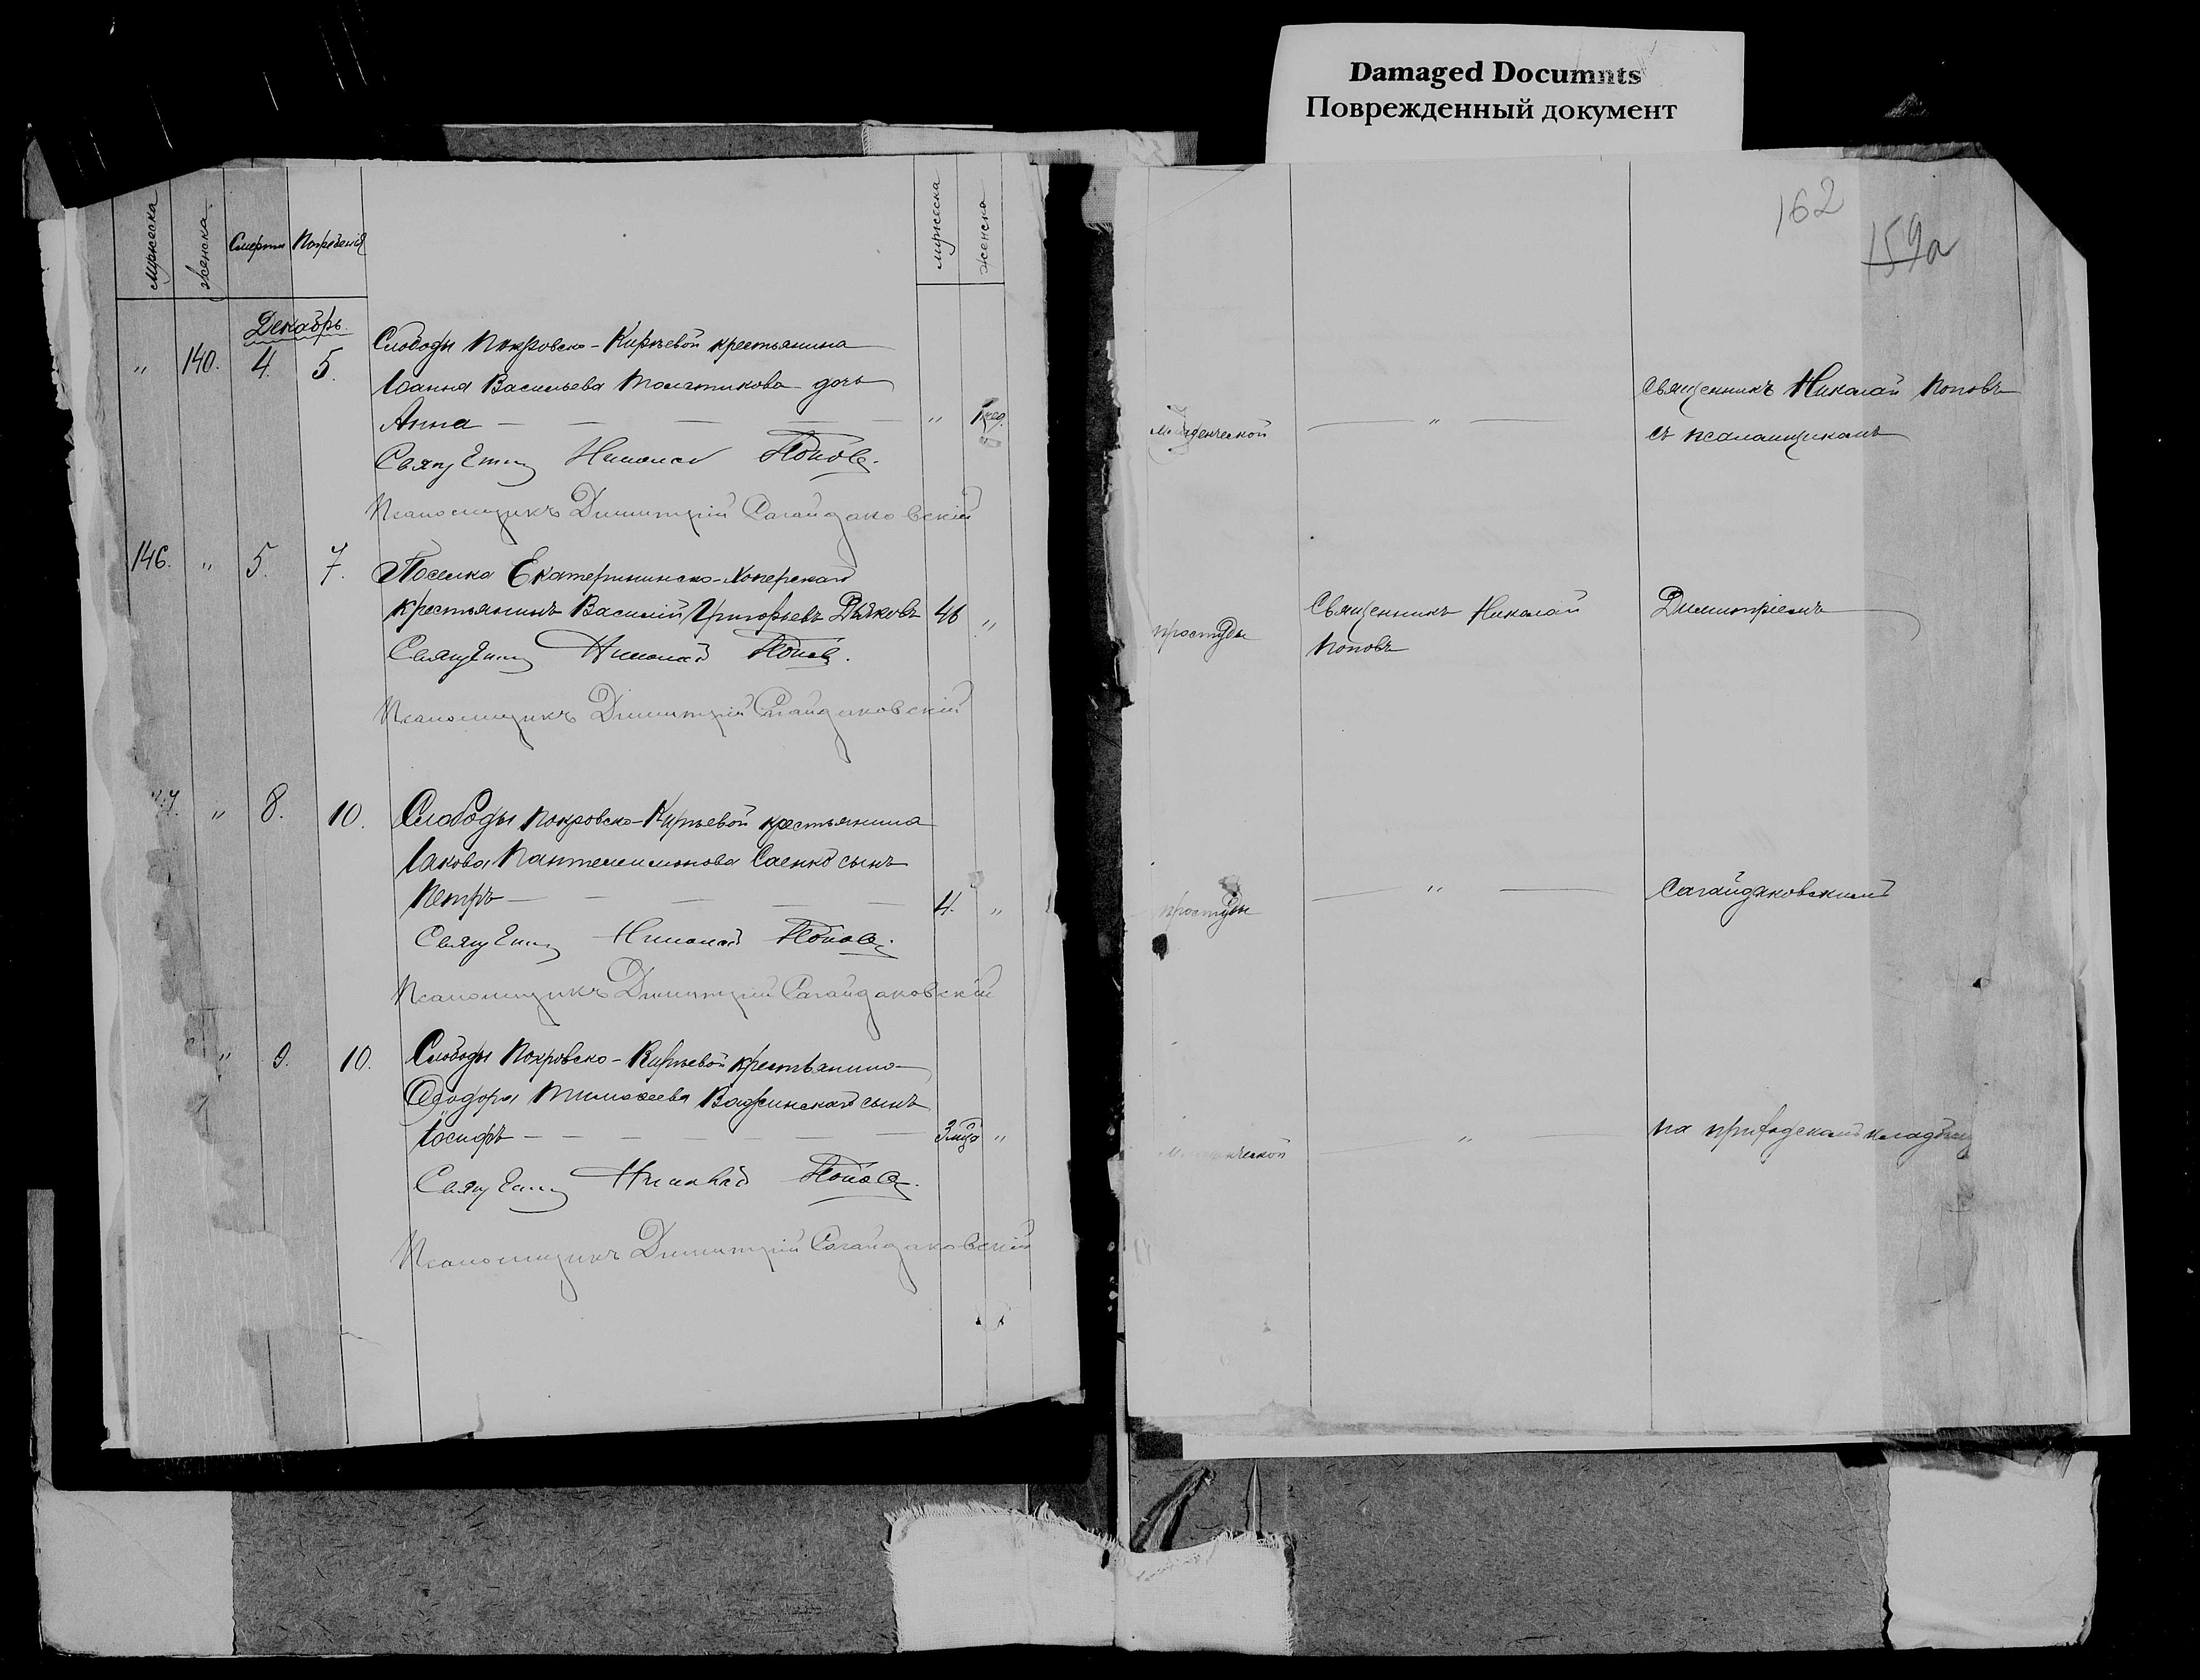 Damaged Documnts
Поврежденный документ
162
159а
Мужеска Женска Смерти Погребенія Мужеска Женска
Декабрь
" 140. 4. 5. Слободы Покровско-Киреевой крестьянина
Іоанна Васильева дочь
Анна " 1 нед.
Священник Николай Попов.
Псаломщикъ Димитрій Сагайдаковскій
146. " 5. 7. Поселка Екатерининско-Хоперскаго
крестьянинъ Василій Григорьевъ Дьяковъ 46 "
Священник Николай Попов.
Псаломщикъ Димитрій Сагайдаковскій
" 8. 10. Слободы Покровско-Киреевой крестьянина
Іакова Пантелеимонова Саенко сынъ
Петръ 4. "
Священник Николай Попов.
Псаломщикъ Димитрій Сагайдаковскій
" 9. 10. Слободы Покровско-Киреевой крестьянина
Ѳеодора Тимоѳеева сынъ
Іосифъ 3 мца "
Священник Николай Попов.
Псаломщикъ Димитрій Сагайдаковскій
Младенческой " Священникъ Николай Поповъ
съ псаломщикомъ
простуды Священникъ Николай Димитріемъ
Поповъ
простуды " Сагайдаковскимъ
Младенческой " на приходскомъ кладбищѣ